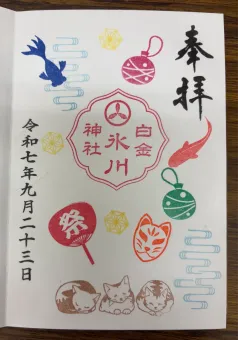 奉拝
白金
氷川
神社
祭
令和七年九月二十三日